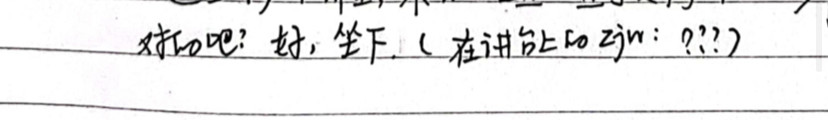 对的吧？好，坐下.（在讲台上的zjw：???）